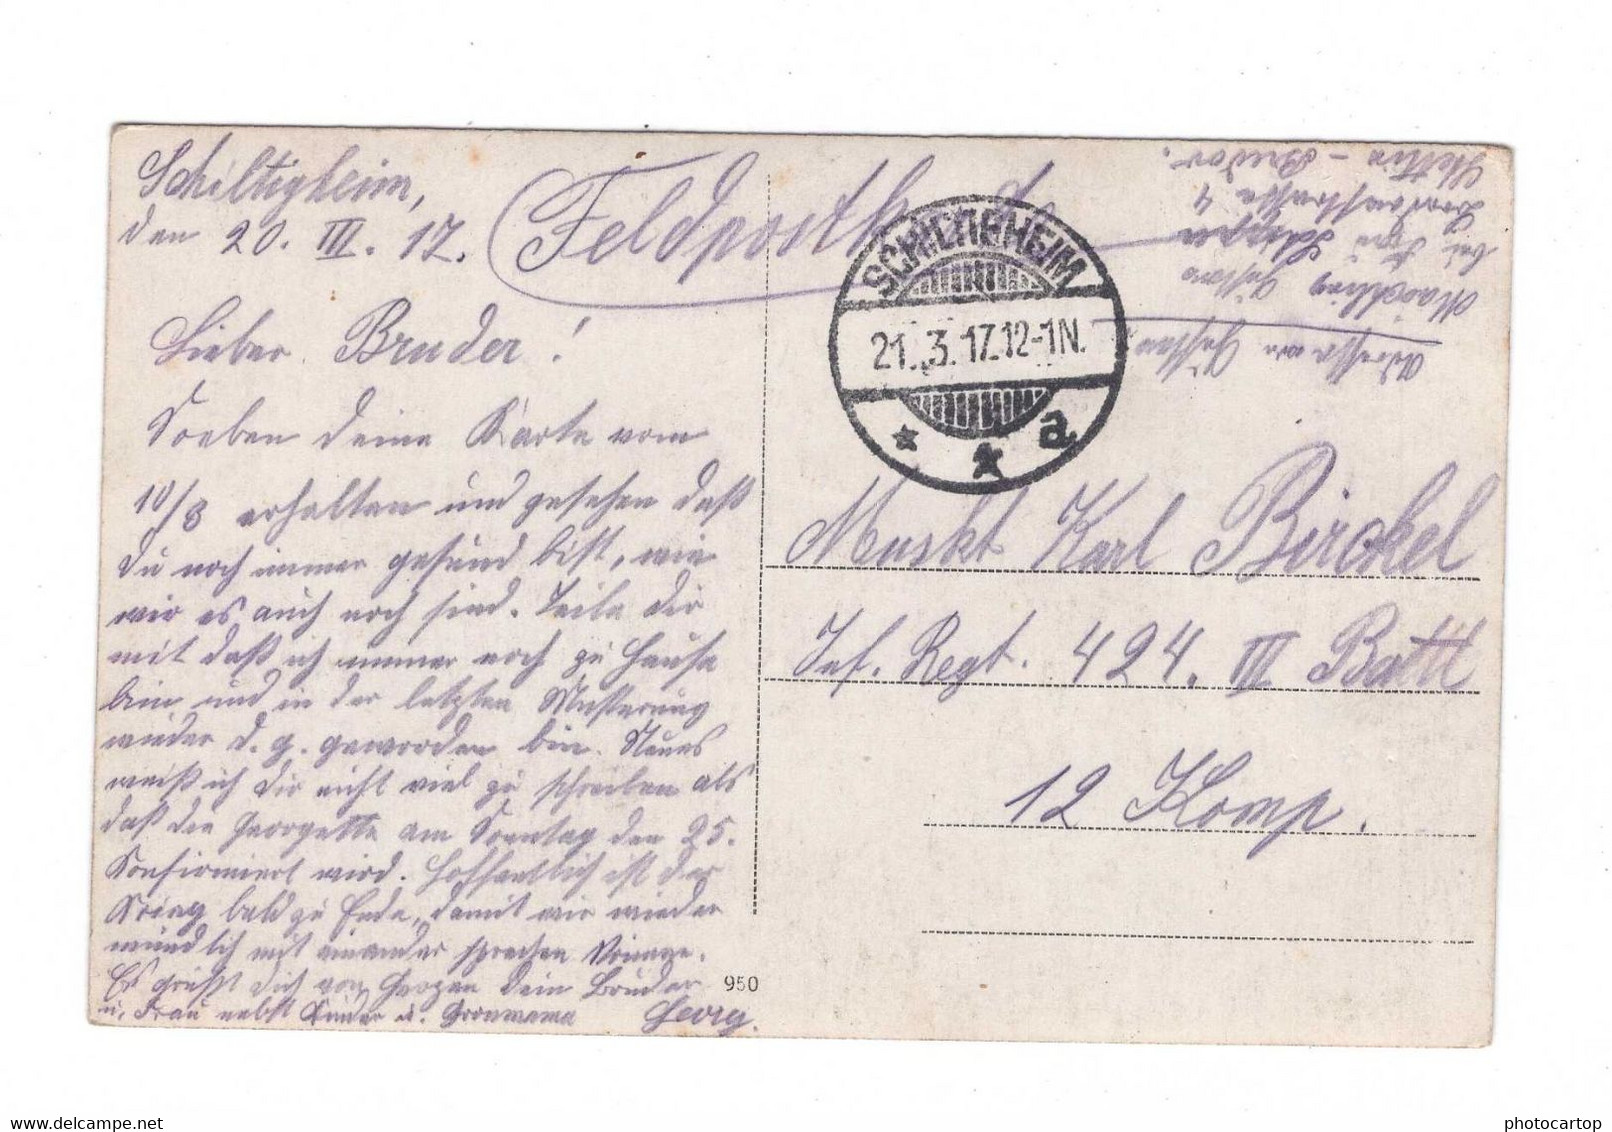 Schiltigheim,
den 20. III. 17.
Feldpostk
SCHILTIGHEIM
21. 3. 17. 12-1N.
* * a
Adresse von Gustav
Gustav
bei
4
Stettin - Bredow.
Lieber Bruder!
Soeben deine Karte vom
10/3 erhalten und gesehen daß
Du noch immer gesund bist, wie
wir es auch noch sind. Teile dir
mit daß ich immer noch zu Hause
bin und in der letzten Musterung
wieder d. g. geworden bin. Neues
weiß ich dir nicht viel zu schreiben als
daß die Georgette am Sonntag den 25.
Konfirmiert wird. Hoffentlich ist der
Krieg bald zu Ende, damit wir wieder
mündlich mit einander sprechen können.
Es grüßt dich von Herzen dein Bruder
u. Frau nebst Kinder u. Georg.
950
Muskt Karl Birckel
Inf. Regt. 424. III Batl
12 Komp.
delcampe.net
photocartop